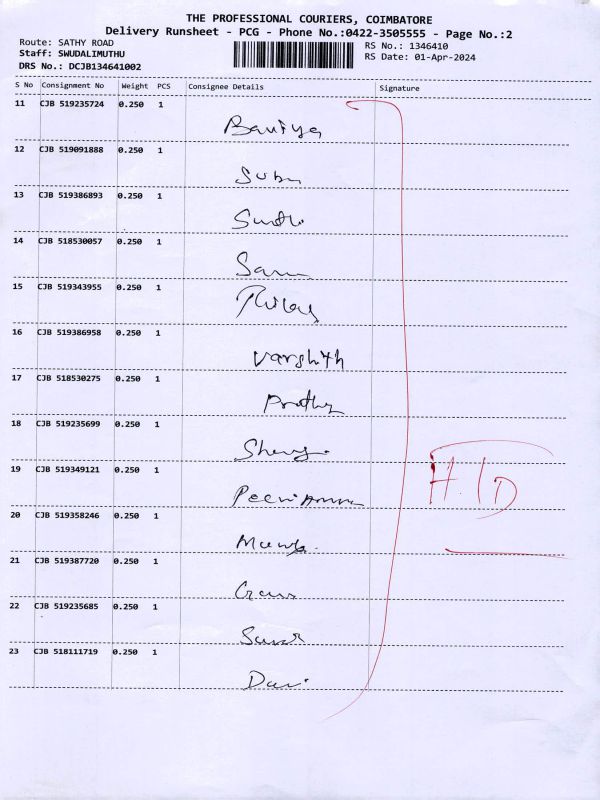 THE PROFESSIONAL COURIERS, COIMBATORE
Delivery Runsheet - PCG - Phone No.:0422-3505555 - Page No.:2
Route: SATHY ROAD
RS No.: 1346410
Staff: SWUDALIMUTHU
RS Date: 01-Apr-2024
DRS No.: DCJB134641002
S No Consignment No Weight PCS Consignee Details Signature
11 CJB 519235724 0.250 1
12 CJB 519091888 0.250 1
13 CJB 519386893 0.250 1
14 CJB 518530057 0.250 1
15 CJB 519343955 0.250 1
16 CJB 519386958 0.250 1
Varshith
17 CJB 518530275 0.250 1
18 CJB 519235699 0.250 1
19 CJB 519349121 0.250 1
H.D
20 CJB 519358246 0.250 1
21 CJB 519387720 0.250 1
22 CJB 519235685 0.250 1
23 CJB 518111719 0.250 1